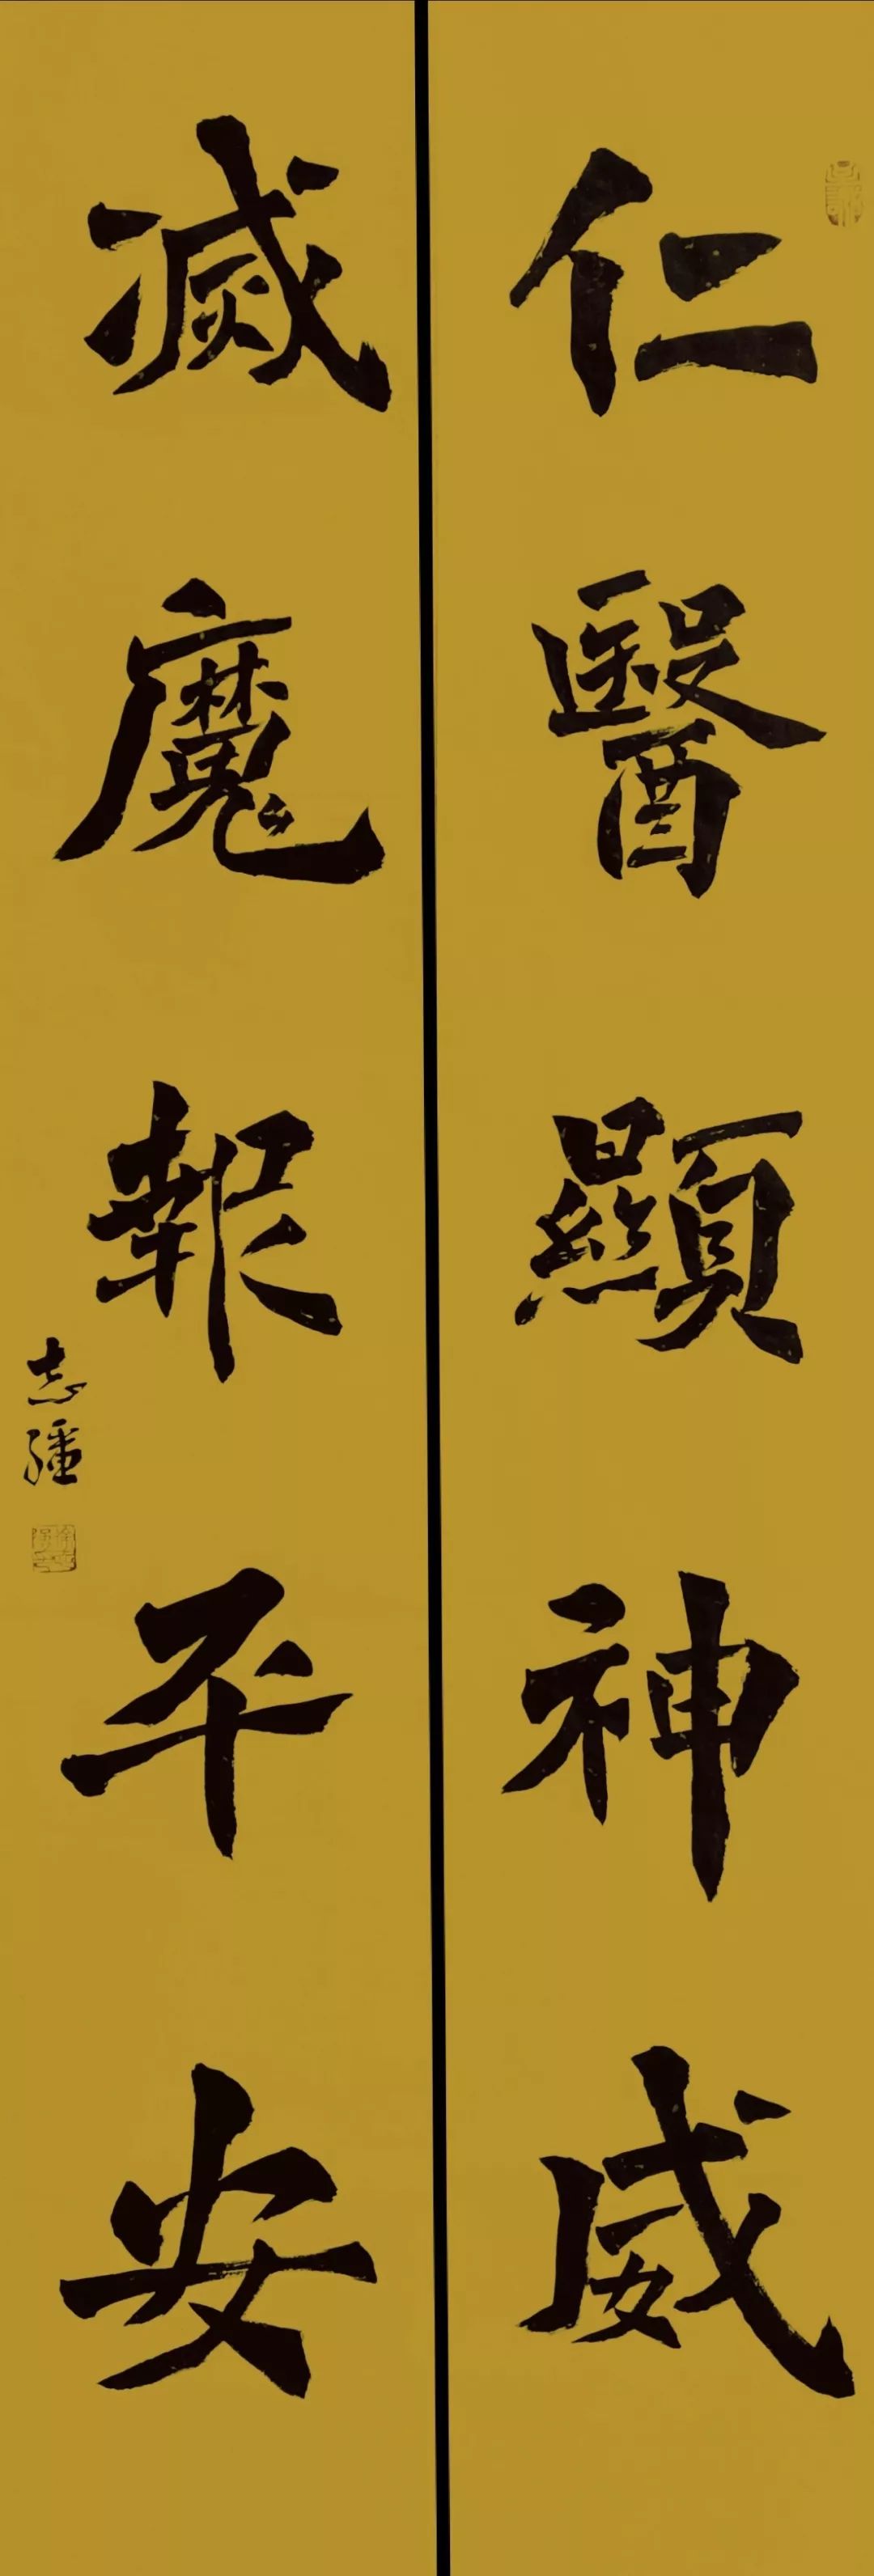 仁醫顯神威
滅魔報平安
志疆